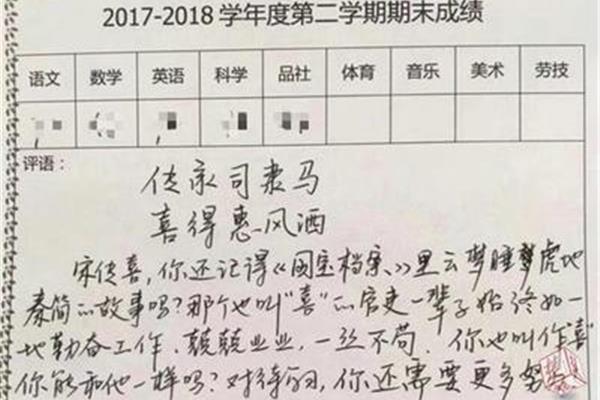 2017-2018 学年度第二学期期末成绩
语文 数学 英语 科学 品社 体育 音乐 美术 劳技
评语：
传承司表马
喜得惠风洒
宋传喜，你还记得《国宝档案》里云梦睡梦虎地
秦简的故事吗？那个也叫“喜”的官吏一辈子始终如一
地勤奋工作、兢兢业业，一丝不苟。你也叫作“喜”
你能和他一样吗？对待的，你还需要更多努